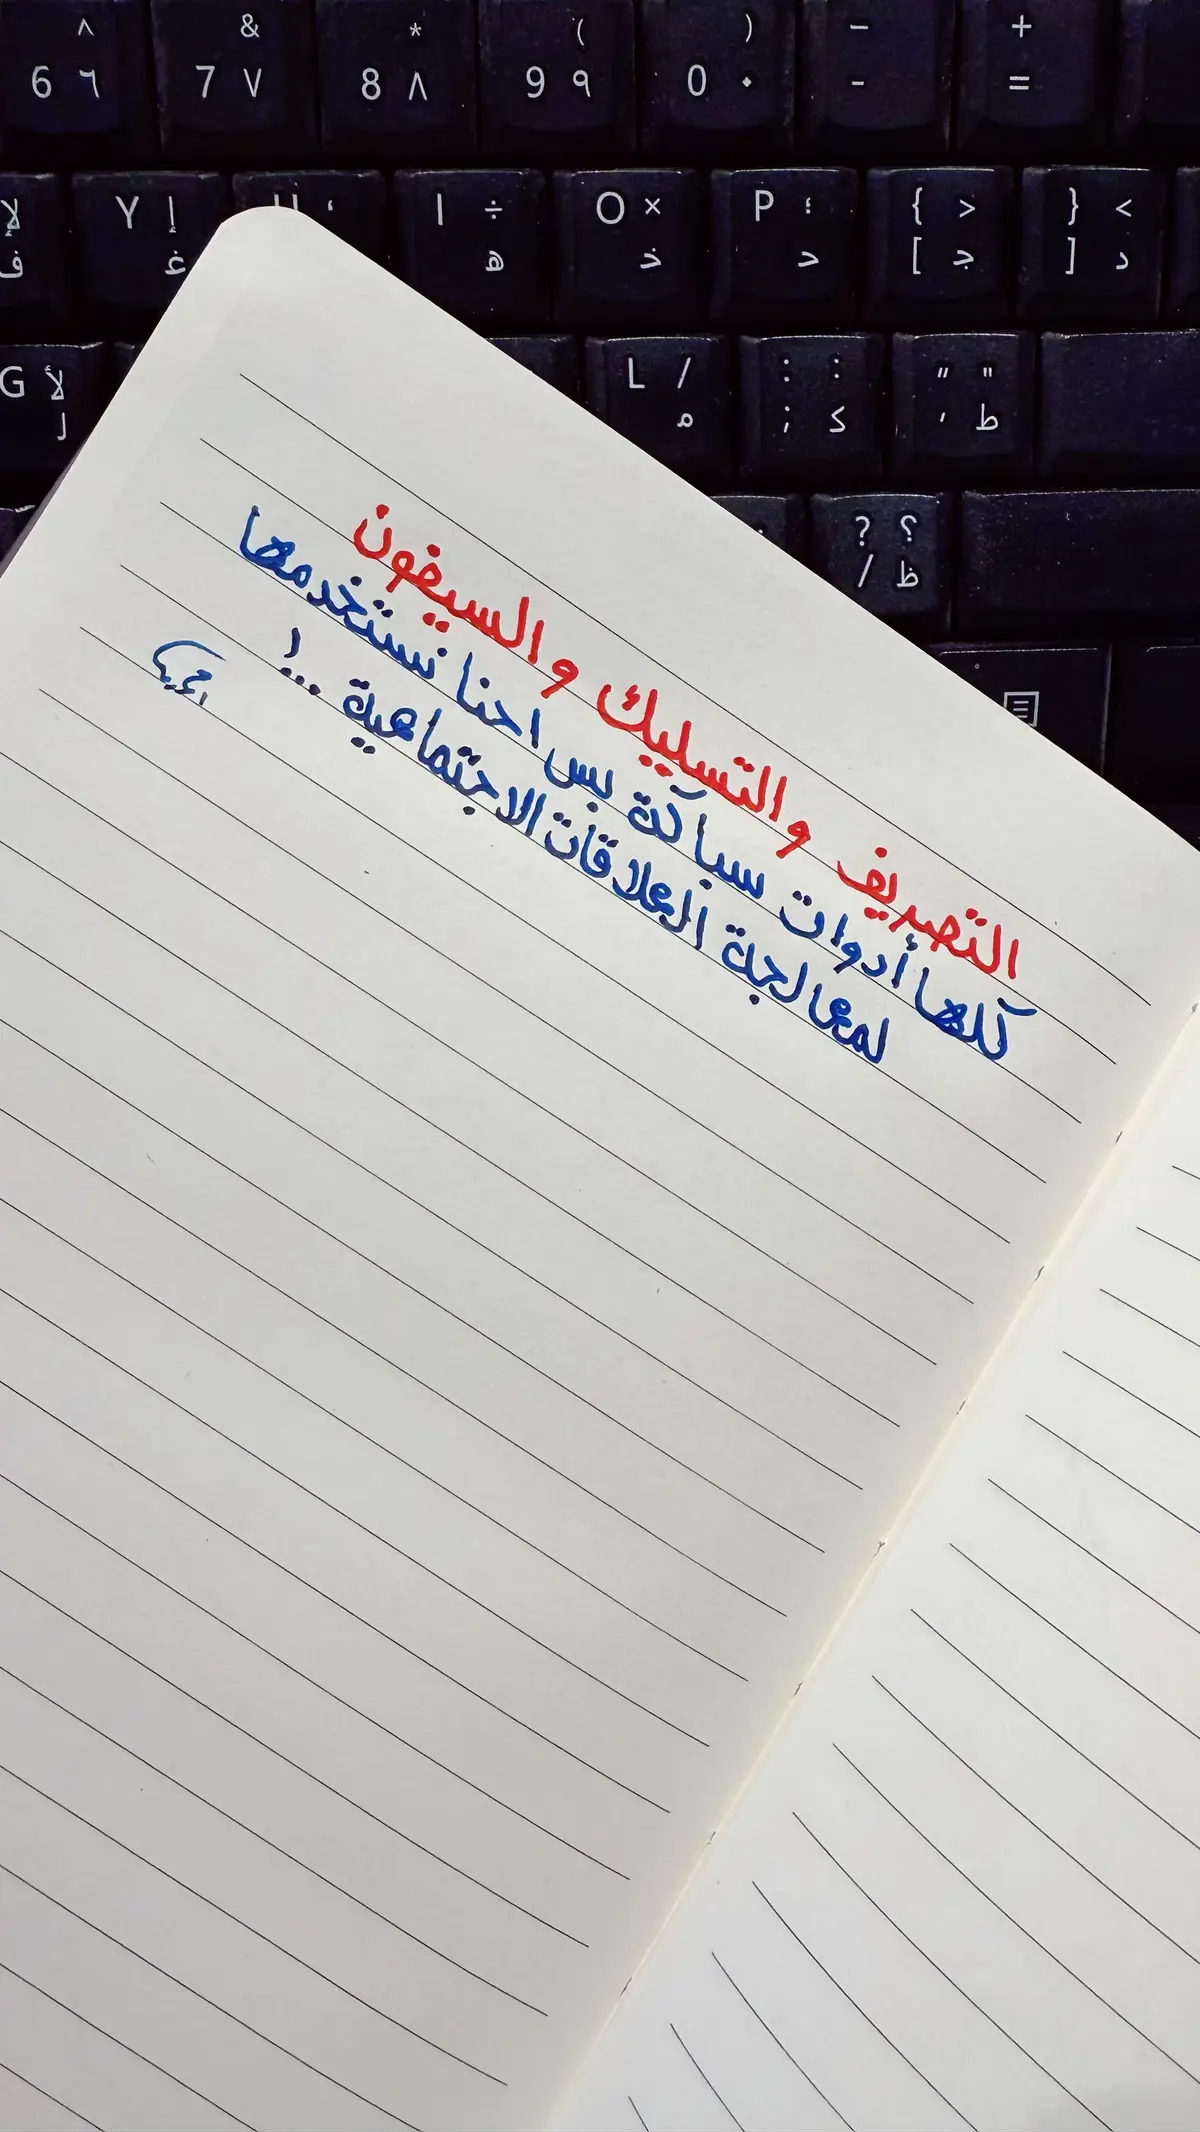 ^ & * ( ) - +
6 ٦ 7 ٧ 8 ٨ 9 ٩ 0 ٠ - =
لإ Y إ ، I ÷ O × P ؛ { > } <
ف غ ه خ ح [ ج ] د
G لأ L / : : " "
ل م ; ك ' ط
? ؟
/ ظ
التصريف والتسليك والسيفون
كلها أدوات سباكة بس احنا نستخدمها
لمعالجة العلاقات الاجتماعية ...!